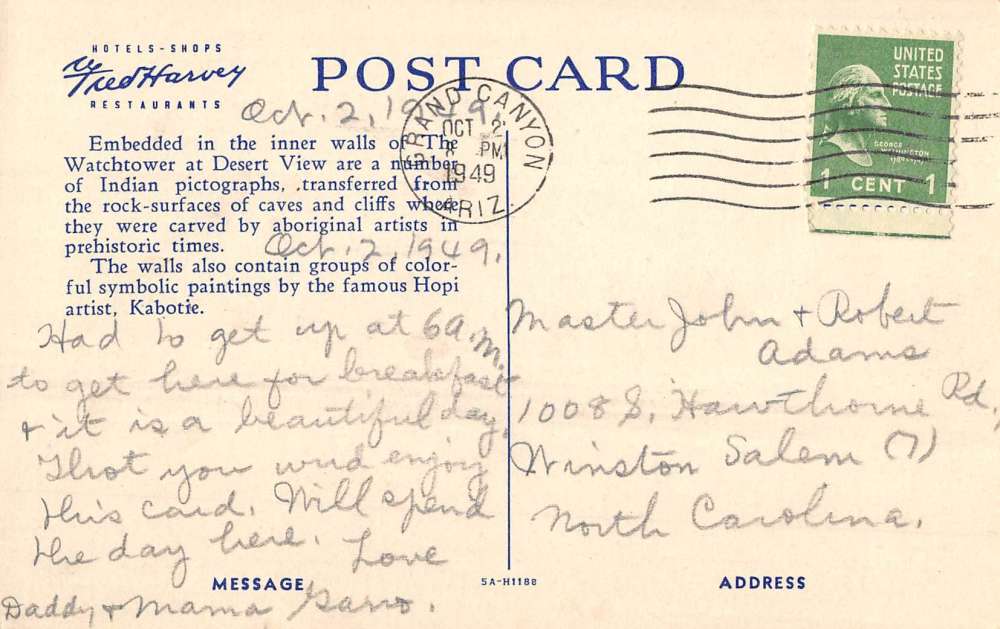 HOTELS-SHOPS
Fred Harvey
RESTAURANTS
POST CARD
Oct. 2, 1949.
GRAND CANYON
OCT 2
8 PM
1949
ARIZ.
UNITED
STATES
POSTAGE
GEORGE
WASHINGTON
1789-1797
1 CENT 1
Embedded in the inner walls of The
Watchtower at Desert View are a number
of Indian pictographs, transferred from
the rock-surfaces of caves and cliffs where
they were carved by aboriginal artists in
prehistoric times.
Oct. 2, 1949.
The walls also contain groups of color-
ful symbolic paintings by the famous Hopi
artist, Kabotie.
Had to get up at 6 a.m.
to get here for breakfast
+ it is a beautiful day.
Thot you wud enjoy
this card. Will spend
the day here. Love
Daddy + Mama
Master John + Robert
Adams
1008 S. Hawthorne Rd,
Winston Salem (7)
North Carolina.
MESSAGE
5A-H1188
ADDRESS